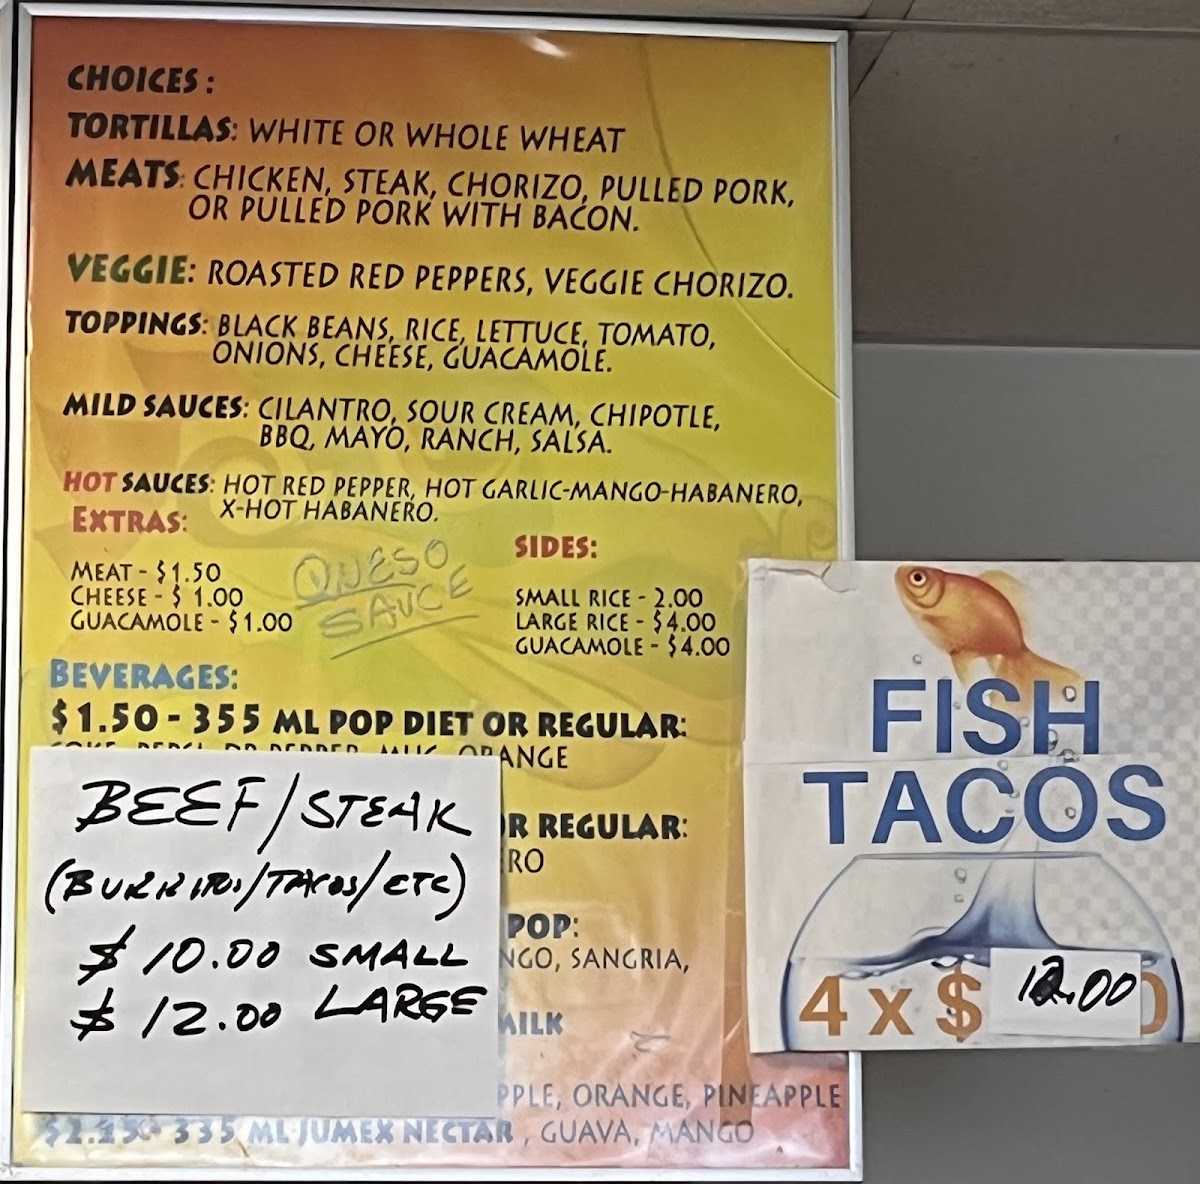 CHOICES:
TORTILLAS: WHITE OR WHOLE WHEAT
MEATS: CHICKEN, STEAK, CHORIZO, PULLED PORK,
OR PULLED PORK WITH BACON.
VEGGIE: ROASTED RED PEPPERS, VEGGIE CHORIZO.
TOPPINGS: BLACK BEANS, RICE, LETTUCE, TOMATO,
ONIONS, CHEESE, GUACAMOLE.
MILD SAUCES: CILANTRO, SOUR CREAM, CHIPOTLE,
BBQ, MAYO, RANCH, SALSA.
HOT SAUCES: HOT RED PEPPER, HOT GARLIC-MANGO-HABANERO,
X-HOT HABANERO.
EXTRAS:
MEAT - $1.50
CHEESE - $ 1.00
GUACAMOLE - $1.00
QUESO
SAUCE
SIDES:
SMALL RICE - 2.00
LARGE RICE - $4.00
GUACAMOLE - $4.00
BEVERAGES:
$1.50 - 355 ML POP DIET OR REGULAR:
COKE, PEPSI, DR PEPPER, MUG, ORANGE
OR REGULAR:
POP:
SANGRIA,
MILK
ORANGE, PINEAPPLE
$2.25 - 335 ML JUMEX NECTAR, GUAVA, MANGO
BEEF/STEAK
(BURRITOS/TACOS/ETC)
$ 10.00 SMALL
$ 12.00 LARGE
FISH
TACOS
4 x $ 12.00